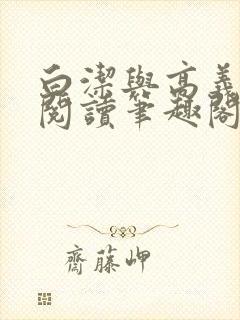 白潔與高義
閱讀筆趣閣
齋藤岬